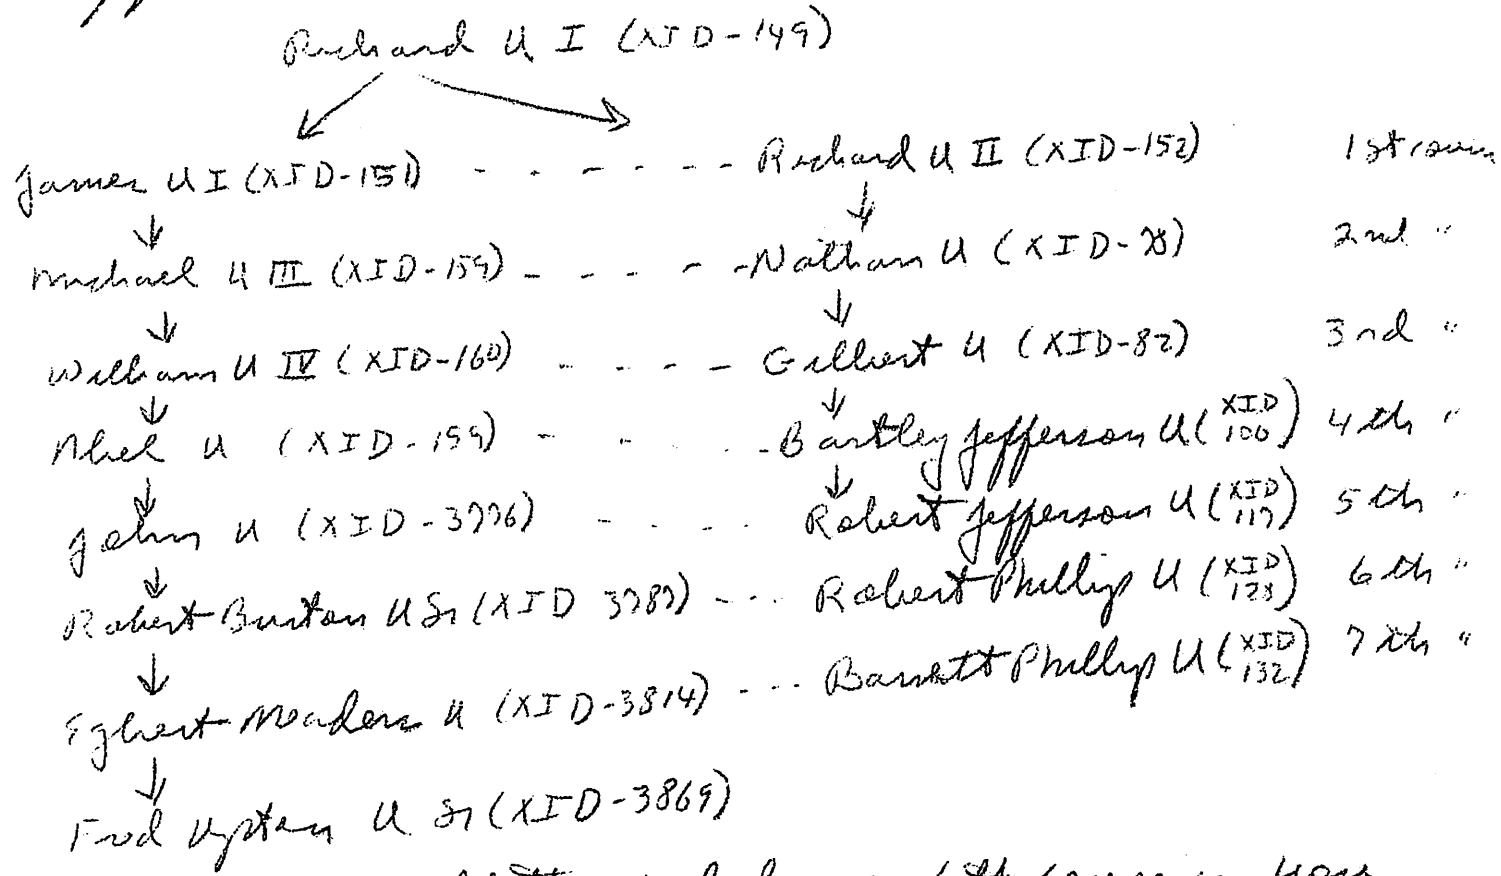 Richard U I (XID-149)
James U I (XID-151) - - - - - - Richard U II (XID-152) 1st cousin
Michael U III (XID-159) - - - - - Nathan U (XID-78) 2nd "
William U IV (XID-160) - - - - Gilbert U (XID-82) 3rd "
Abel U (XID-159) - - - - Bartley Jefferson U (XID 106) 4th "
John U (XID-3776) - - - - Robert Jefferson U (XID 117) 5th "
Robert Burton U Sr (XID 3787) - - - Robert Phillip U (XID 128) 6th "
Egbert Meaders U (XID-3814) - - - Barnett Phillip U (XID 132) 7th "
Fred Upton U Sr (XID-3869)